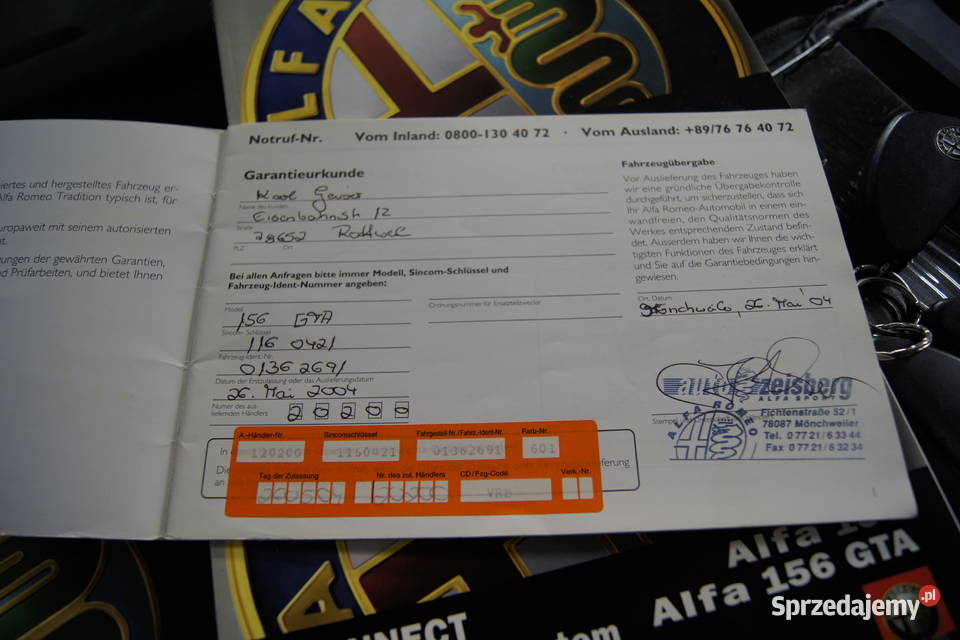 ALFA
Notruf-Nr. Vom Inland: 0800-130 40 72 · Vom Ausland: +89/76 76 40 72
iertes und hergestelltes Fahrzeug er-
Alfa Romeo Tradition typisch ist, für
uropaweit mit seinem autorisierten
ungen der gewährten Garantien,
d Prüfarbeiten, und bietet Ihnen
Garantieurkunde
Name des Kunden
Eisenbahnstr 12
Straße
78652 Rottweil
PLZ Ort
Bei allen Anfragen bitte immer Modell, Sincom-Schlüssel und
Fahrzeug-Ident-Nummer angeben:
Modell
Ordnungsnummer für Ersatzteilzwecke
156 GTA
Sincom-Schlüssel
116 0421
Fahrzeug-Ident.-Nr.
01362691
Datum der Erstzulassung oder das Auslieferungsdatum
26. Mai 2004
Numer des aus-
liefernden Händlers
20200
Fahrzeugübergabe
Vor Auslieferung des Fahrzeuges haben
wir eine gründliche Übergabekontrolle
durchgeführt, um sicherzustellen, dass sich
Ihr Alfa Romeo-Automobil in einem ein-
wandfreien, den Qualitätsnormen des
Werkes entsprechendem Zustand befin-
det. Ausserdem haben wir Ihnen die wich-
tigsten Funktionen des Fahrzeuges erklärt
und Sie auf die Garantiebedingungen hin-
gewiesen.
Ort, Datum
Mönchweiler, 26. Mai 04
auto zeisberg
ALFA SPORT
ALFA ROMEO
Fichtenstraße 52/1
78087 Mönchweiler
Tel. 07721/63344
Fax 07721/63234
A.-Händler-Nr. Sincomschlüssel Fahrgestell-Nr./Fahrz.-Ident-Nr. Farb-Nr.
120200 1160421 01362691 601
Tag der Zulassung Nr. des zul. Händlers CD/Fzg-Code Verk.-Nr.
260504 20200 VRB
ieferung
1
Alfa 156 GTA
NNECT
Sprzedajemy.pl